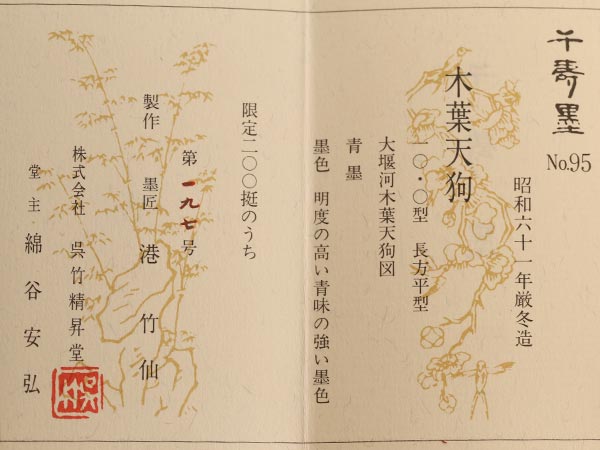 千寿墨
No.95
昭和六十一年厳冬造
木葉天狗
一〇・〇型 長方平型
大堰河木葉天狗図
青墨
墨色 明度の高い青味の強い墨色
限定二〇〇挺のうち
第一九七号
製作 墨匠 港竹仙
株式会社 呉竹精昇堂
堂主 綿谷安弘
呉竹